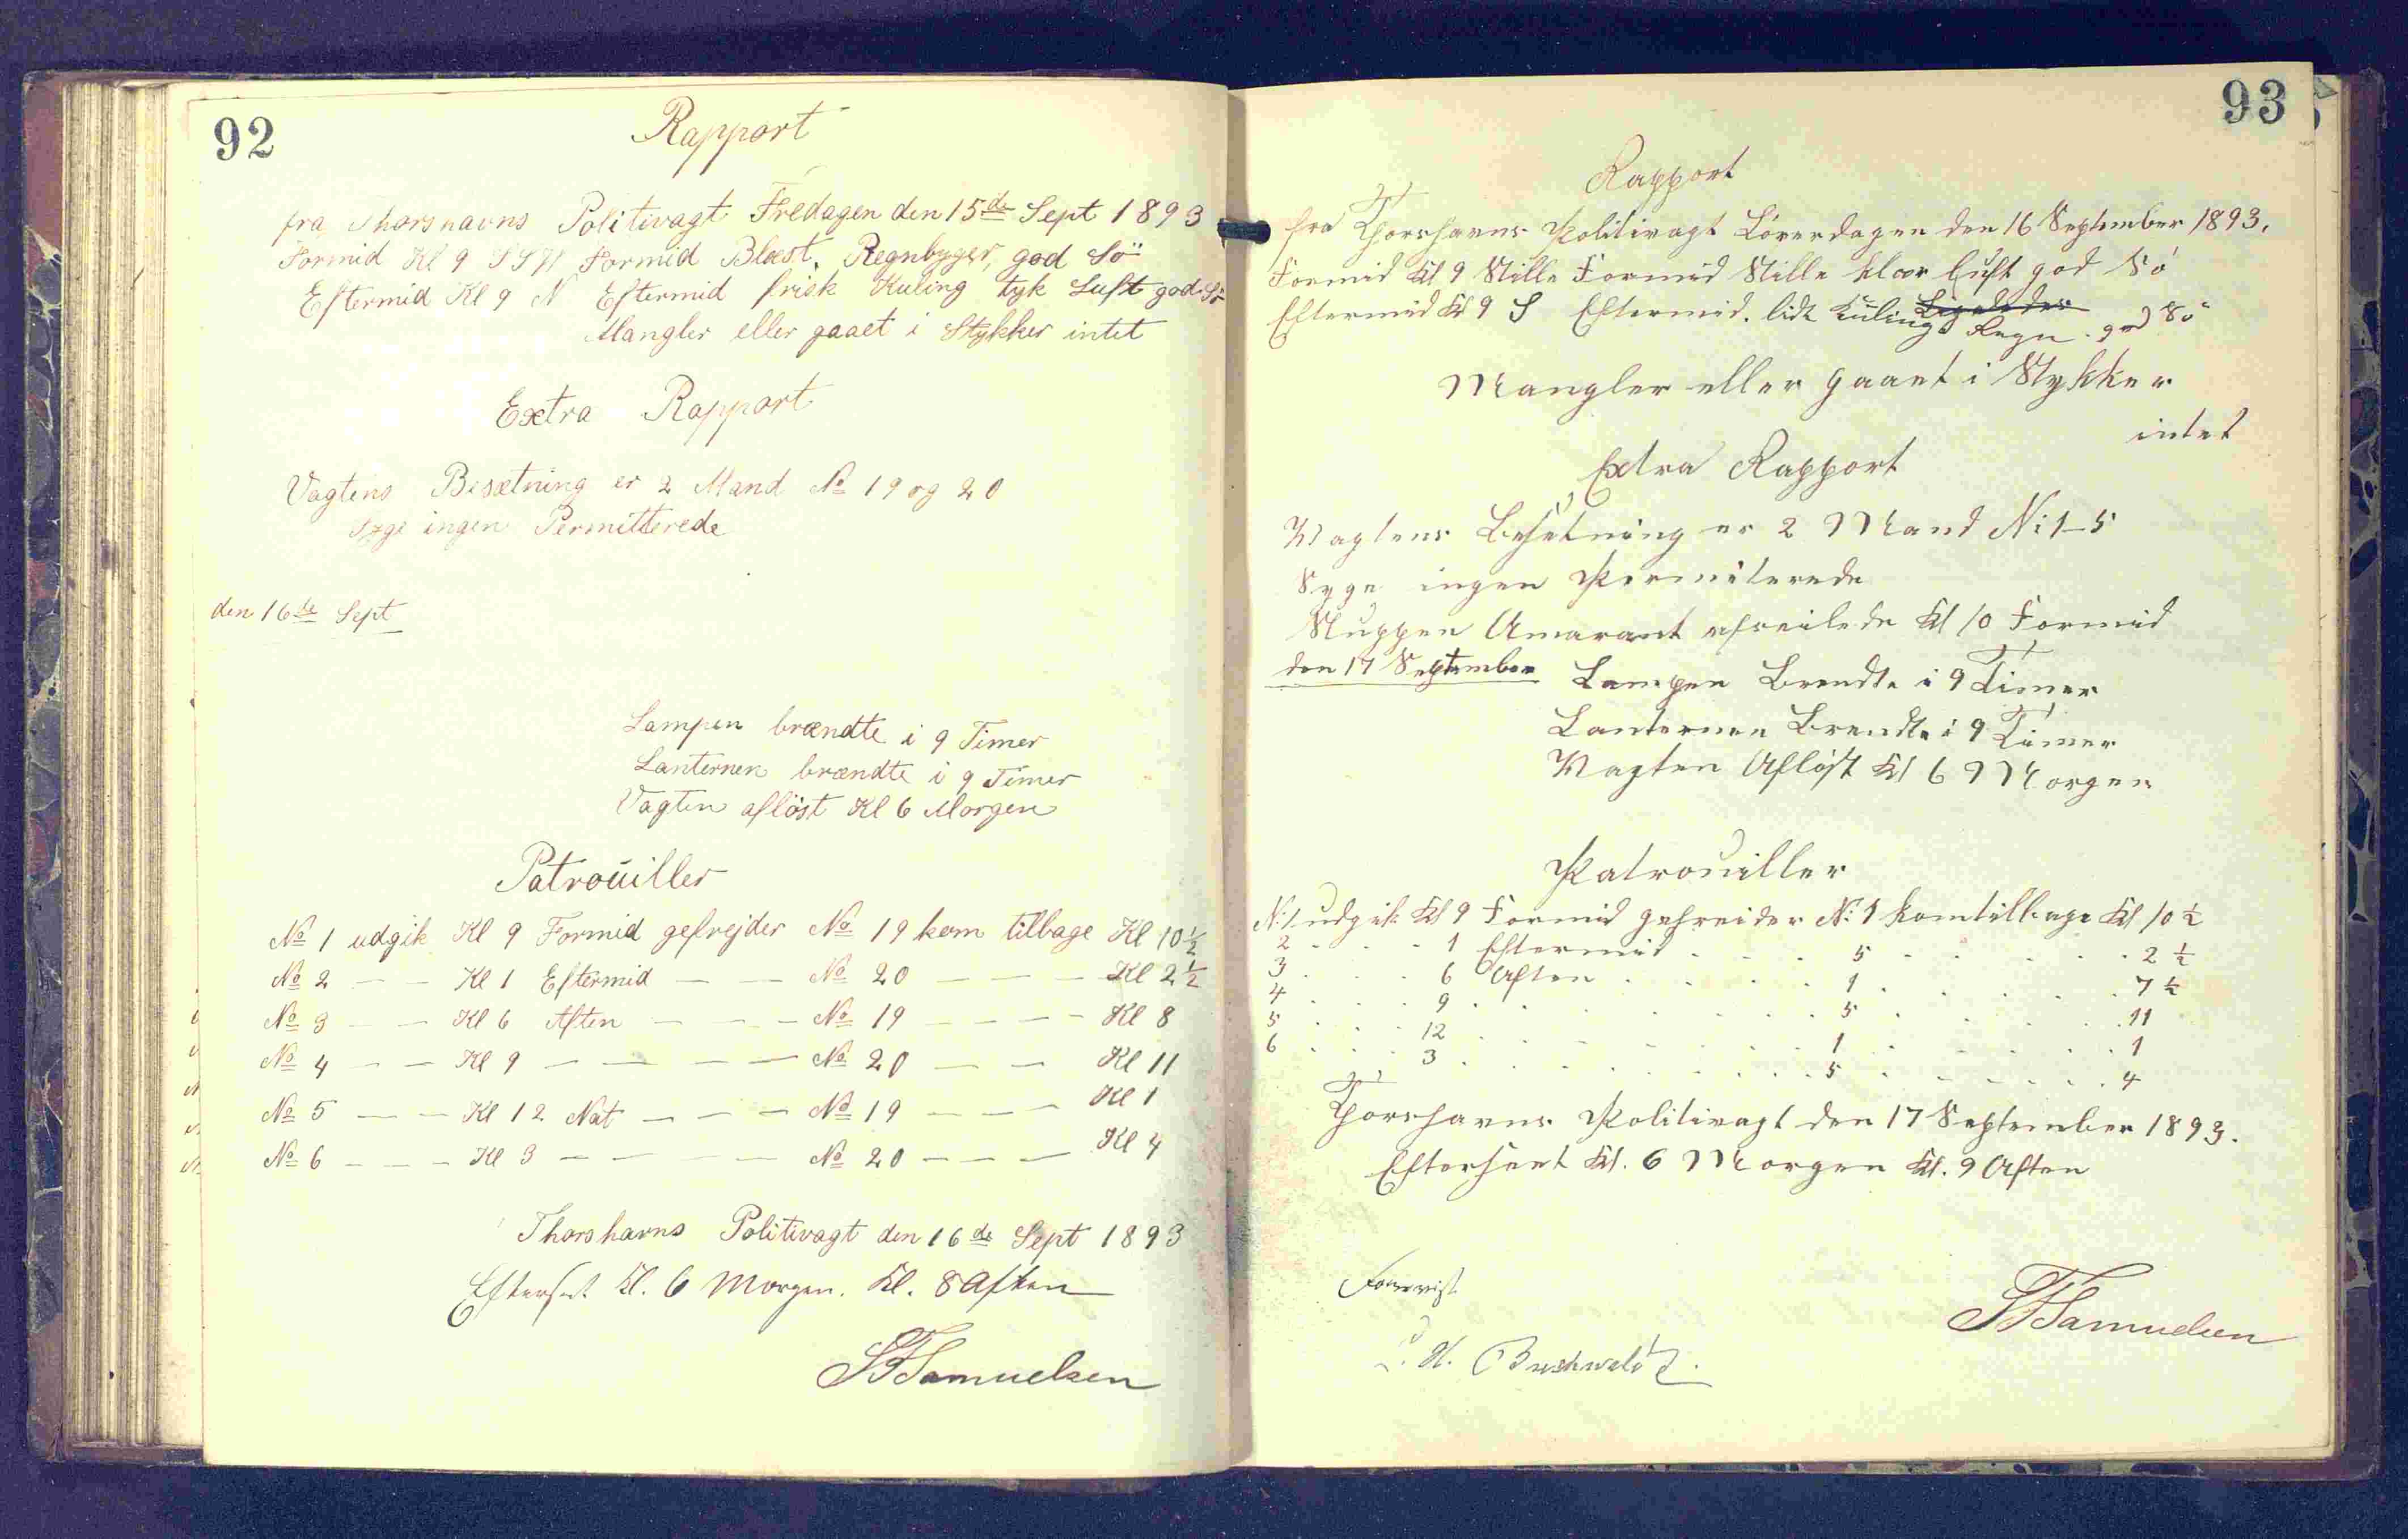 92
Rapport
fra Thorshavns Politivagt Fredagen den 15de Sept 1893
Formid Kl 9 SSW Formid Blæst, Regnbyger, god Sö
Eftermid Kl 9 N Eftermid frisk Kuling tyk Luft god Sö
Mangler eller gaaet i Stykker intet
Extra Rapport
Vagtens Besætning er 2 Mand No 19 og 20
Syge ingen Permitterede
den 16de Sept
Lampen brændte i 9 Timer
Lanternen brændte i 9 Timer
Vagten aflöst Kl 6 Morgen
Patrouiller
No 1 udgik Kl 9 Formid gefrejder No 19 kom tilbage Kl 10½
No 2 — — Kl 1 Eftermid — — No 20 — — — Kl 2½
No 3 — — Kl 6 Aften — — — No 19 — — — — Kl 8
No 4 — — Kl 9 — — — — — No 20 — — Kl 11
No 5 — — Kl 12 Nat — — — No 19 — — — Kl 1
No 6 — — — Kl 3 — — — — No 20 — — — Kl 4
Thorshavns Politivagt den 16de Sept 1893
Efterseet Kl. 6 Morgen. Kl. 8 Aften
Samuelsen
93
Rapport
fra Thorshavns Politivagt Löverdagen den 16 September 1893.
Formid Kl 9 Stille Formid Stille klar Luft god Sö
Eftermid Kl 9 S Eftermid. lidt Kuling Ligeledes Regn. god Sö
Mangler eller gaaet i Stykker
intet
Extra Rapport
Vagtens Besetning er 2 Mand N: 1–5
Syge ingen Permiterede
Sluppen Amarant afseilede Kl 10 Formid
den 17 September Lampen Brendte i 9 Timer
Lanternen Brendte i 9 Timer
Vagten Aflöst Kl 6 Morgen
Patrouiller
N: 1 udgik Kl 9 Formid gefreider N: 1 kom tilbage Kl 10½
2 . . . 1 Eftermid . . . 5 . . . . . . 2½
3 . . . 6 Aften . . . . 1 . . . . . 7½
4 . . . 9 . . . . . . . 5 . . . . . 11
5 . . . 12 . . . . . . . 1 . . . . . 1
6 . . . 3 . . . . . . . 5 . . . . . . 4
Thorshavns Politivagt den 17 September 1893.
Efterseet Kl. 6 Morgen Kl. 9 Aften
Forevist
Samuelsen